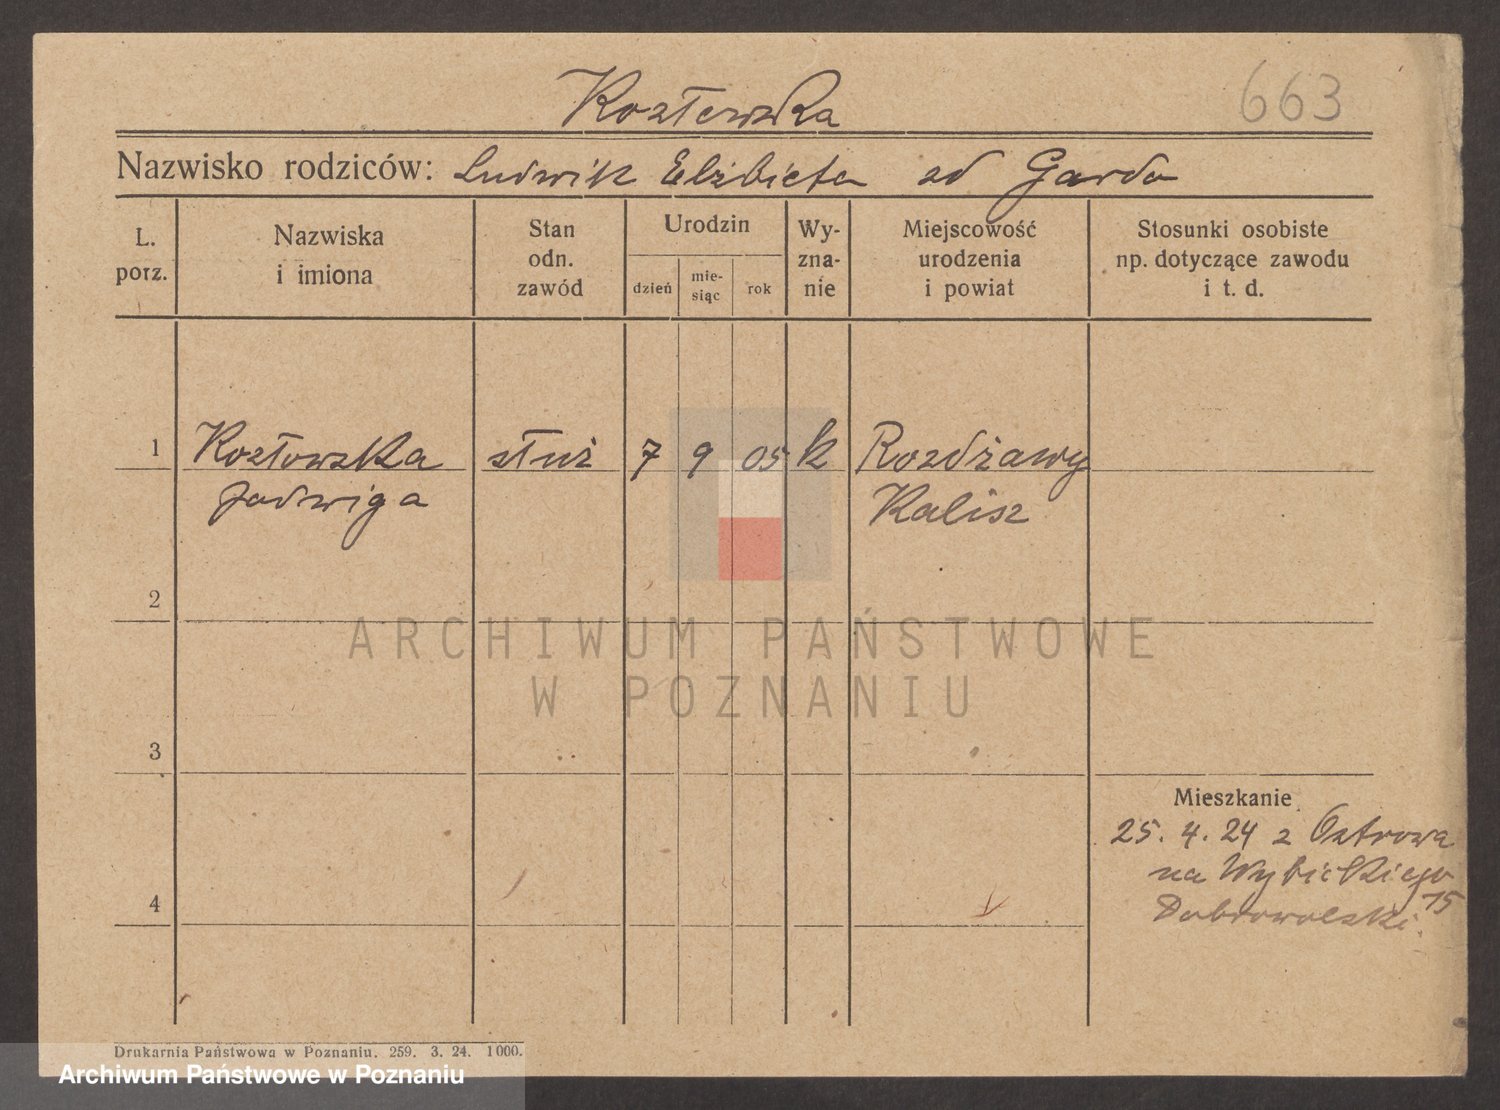 Kozłowska
663
Nazwisko rodziców: Ludwik Elżbieta zd Garda
L. porz.
Nazwiska i imiona
Stan odn. zawód
Urodzin
dzień
mie-siąc
rok
Wy-zna-nie
Miejscowość urodzenia i powiat
Stosunki osobiste np. dotyczące zawodu i t. d.
1 Kozłowska służ 7 9 05 k Rozdżawy
Jadwiga Kalisz
2
ARCHIWUM PAŃSTWOWE
W POZNANIU
3
Mieszkanie
25. 4. 24 z Ostrowa
na Wybickiego 15
Dobrowolski.
4
Drukarnia Państwowa w Poznaniu. 259. 3. 24. 1000.
Archiwum Państwowe w Poznaniu